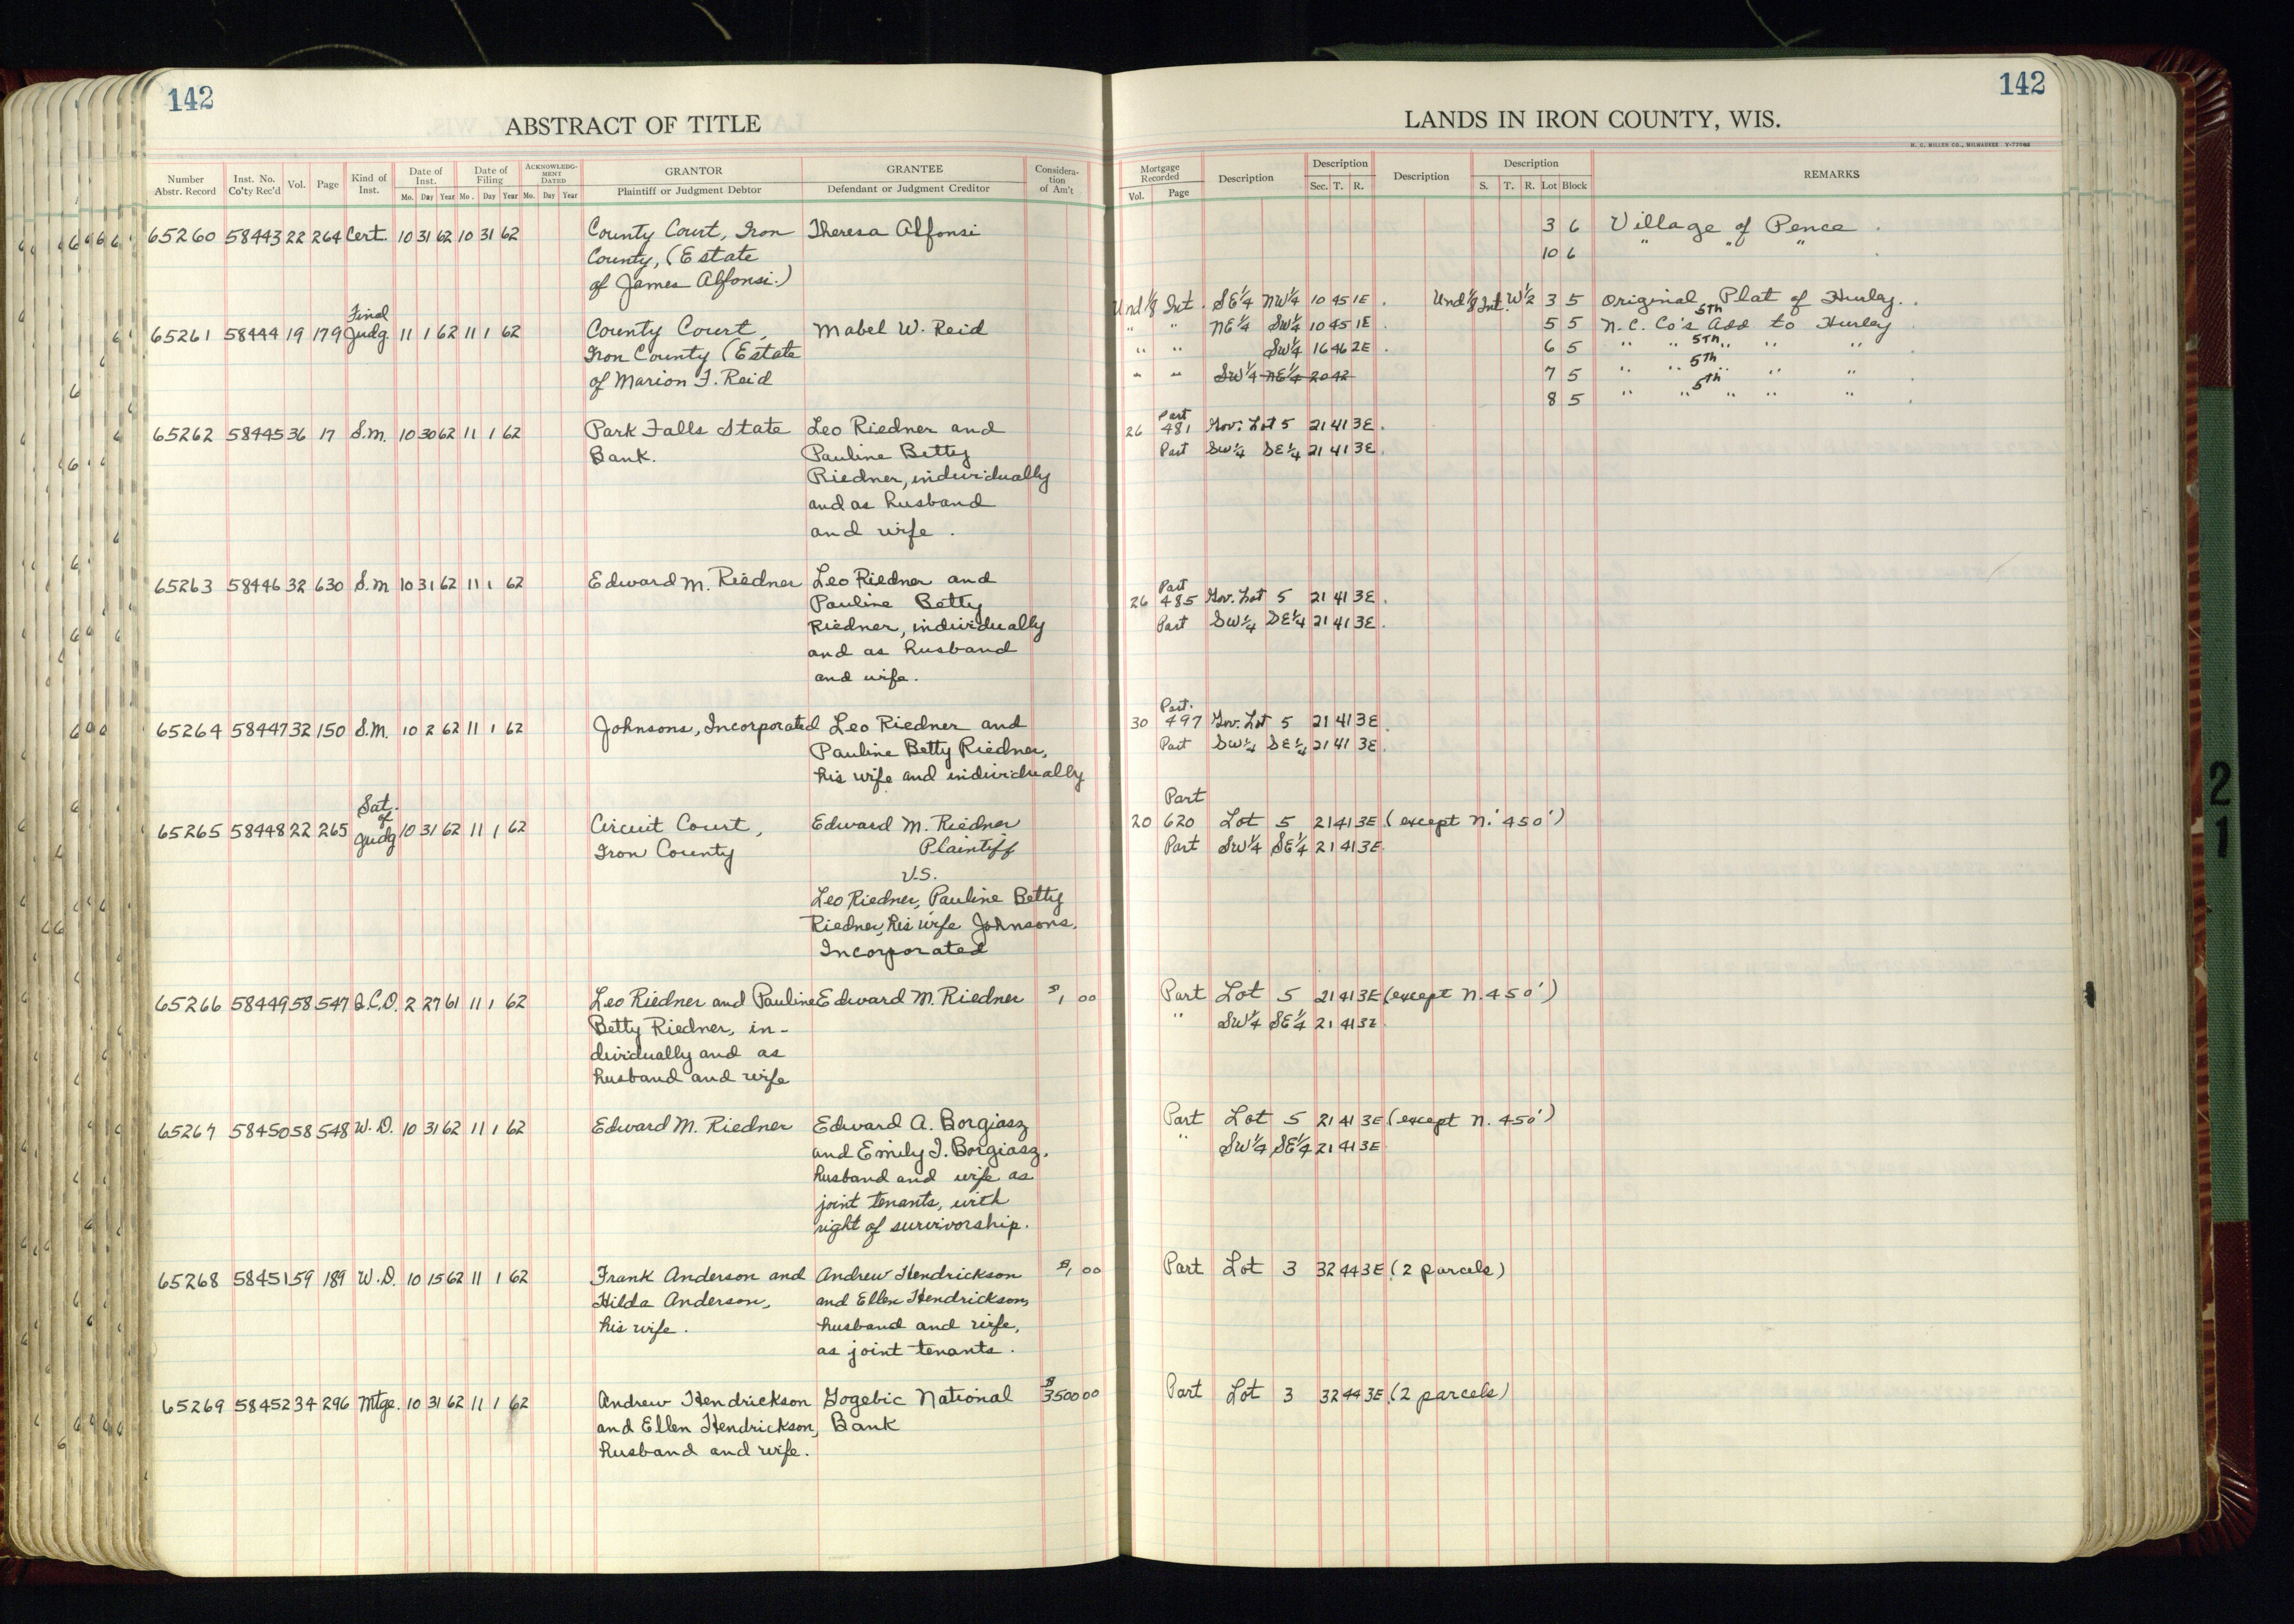 142
ABSTRACT OF TITLE
Number Abstr. Record Inst. No. Co'ty Rec'd Vol. Page Kind of Inst. Date of Inst. Mo. Day Year Date of Filing Mo. Day Year ACKNOWLEDGMENT DATED Mo. Day Year GRANTOR Plaintiff or Judgment Debtor GRANTEE Defendant or Judgment Creditor Consideration of Am't
65260 58443 22 264 Cert. 10 31 62 10 31 62 County Court, Iron Theresa Alfonsi
County, (Estate
of James Alfonsi.)
Final
65261 58444 19 179 Judg. 11 1 62 11 1 62 County Court, Mabel W. Reid
Iron County (Estate
of Marion F. Reid
65262 58445 36 17 S.M. 10 30 62 11 1 62 Park Falls State Leo Riedner and
Bank. Pauline Betty
Riedner, individually
and as husband
and wife.
65263 58446 32 630 S.M 10 31 62 11 1 62 Edward M. Riedner Leo Riedner and
Pauline Betty
Riedner, individually
and as husband
and wife.
65264 58447 32 150 S.M. 10 2 62 11 1 62 Johnsons, Incorporated Leo Riedner and
Pauline Betty Riedner,
his wife and individually
Sat.
of
65265 58448 22 265 Judg 10 31 62 11 1 62 Circuit Court, Edward M. Riedner
Iron County Plaintiff
V.S.
Leo Riedner, Pauline Betty
Riedner, his wife Johnsons,
Incorporated
65266 58449 58 547 Q.C.D. 2 27 61 11 1 62 Leo Riedner and Pauline Edward M. Riedner $1 00
Betty Riedner, in-
dividually and as
husband and wife
65267 58450 58 548 W.D. 10 31 62 11 1 62 Edward M. Riedner Edward A. Borgiasz
and Emily I. Borgiasz,
husband and wife as
joint tenants, with
right of survivorship.
65268 58451 59 189 W.D. 10 15 62 11 1 62 Frank Anderson and Andrew Hendrickson $1 00
Hilda Anderson, and Ellen Hendrickson,
his wife. husband and wife,
as joint tenants.
65269 58452 34 296 Mtge. 10 31 62 11 1 62 Andrew Hendrickson Gogebic National $3500 00
and Ellen Hendrickson, Bank
husband and wife.
142
LANDS IN IRON COUNTY, WIS.
H. C. MILLER CO., MILWAUKEE
Mortgage Recorded Vol. Page Description Description Sec. T. R. Description Description S. T. R. Lot Block REMARKS
3 6 Village of Pence
10 6 " " "
Und 1/8 Int. SE1/4 NW1/4 10 45 1E. Und 1/8 Int. W1/2 3 5 Original Plat of Hurley.
" " NE1/4 SW1/4 10 45 1E. 5 5 N.C. Co's 5th Add to Hurley
" " SW1/4 16 46 2E. 6 5 " " 5th " " "
" " SW1/4 NE1/4 20 42 7 5 " " 5th " " "
8 5 " " 5th " " "
Part
26 481 Gov. Lot 5 21 41 3E.
Part SW1/4 SE1/4 21 41 3E.
Part
26 485 Gov. Lot 5 21 41 3E.
Part SW1/4 SE1/4 21 41 3E.
Part.
30 497 Gov. Lot 5 21 41 3E
Part SW1/4 SE1/4 21 41 3E.
Part
20 620 Lot 5 21 41 3E (except N. 450')
Part SW1/4 SE1/4 21 41 3E.
Part Lot 5 21 41 3E (except N. 450')
" SW1/4 SE1/4 21 41 3E
Part Lot 5 21 41 3E (except N. 450')
" SW1/4 SE1/4 21 41 3E
Part Lot 3 32 44 3E (2 parcels)
Part Lot 3 32 44 3E (2 parcels)
21